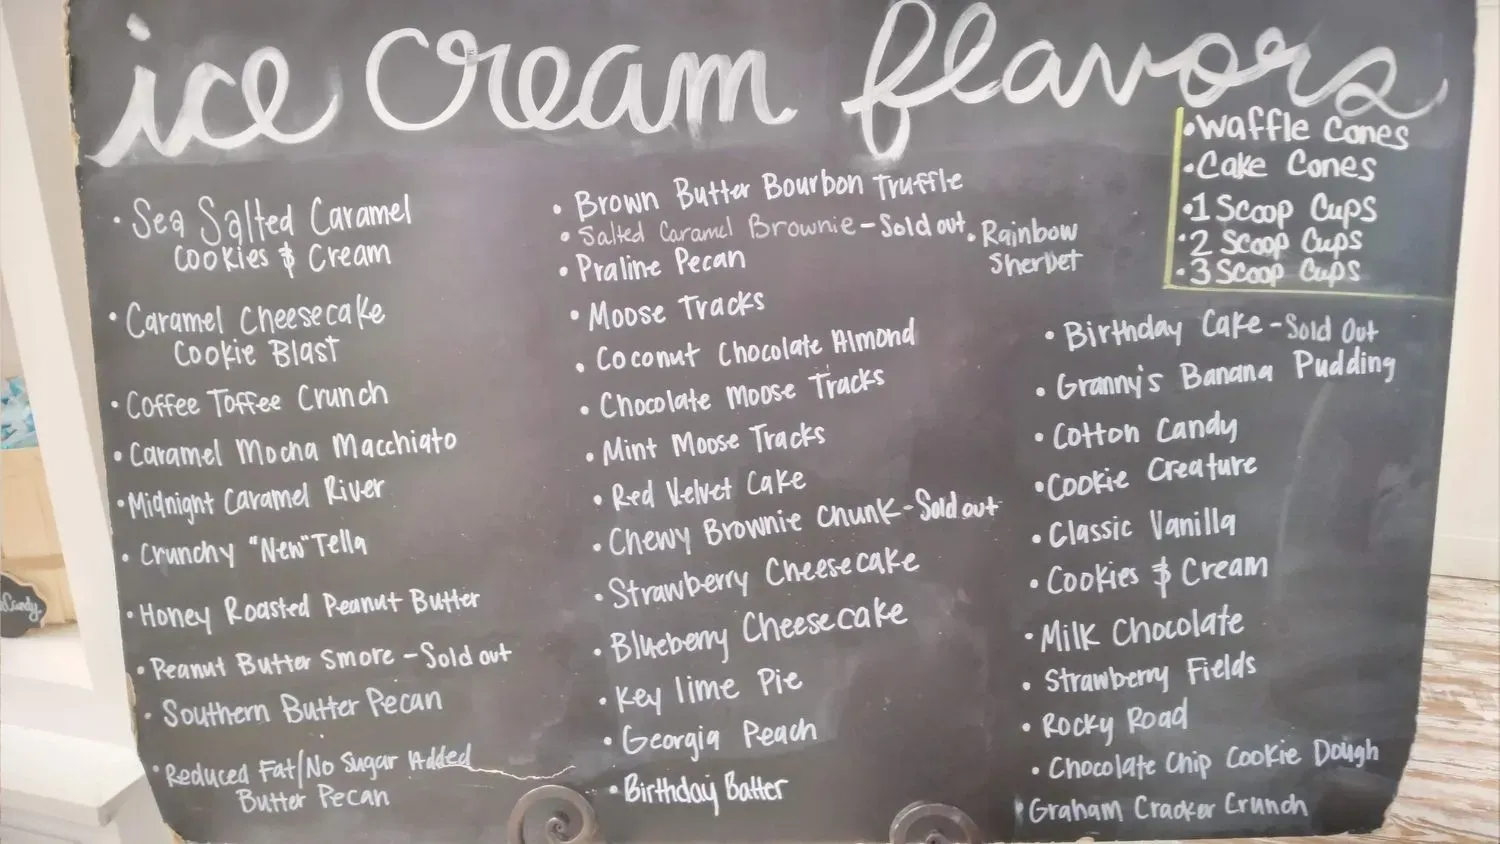 ice cream flavors
• Waffle Cones
• Cake Cones
• 1 Scoop Cups
• 2 Scoop Cups
• 3 Scoop Cups
• Sea Salted Caramel
Cookies & Cream
• Caramel Cheesecake
Cookie Blast
• Coffee Toffee Crunch
• Caramel Mocha Macchiato
• Midnight Caramel River
• Crunchy "New"Tella
• Honey Roasted Peanut Butter
• Peanut Butter Smore - Sold out
• Southern Butter Pecan
• Reduced Fat/No Sugar Added
Butter Pecan
• Brown Butter Bourbon Truffle
• Salted Caramel Brownie - Sold out
• Praline Pecan
• Moose Tracks
• Coconut Chocolate Almond
• Chocolate Moose Tracks
• Mint Moose Tracks
• Red Velvet Cake
• Chewy Brownie Chunk - Sold out
• Strawberry Cheesecake
• Blueberry Cheesecake
• Key lime Pie
• Georgia Peach
• Birthday Batter
• Rainbow
Sherbet
• Birthday Cake - Sold Out
• Granny's Banana Pudding
• Cotton Candy
• Cookie Creature
• Classic Vanilla
• Cookies & Cream
• Milk Chocolate
• Strawberry Fields
• Rocky Road
• Chocolate Chip Cookie Dough
• Graham Cracker Crunch
Candy